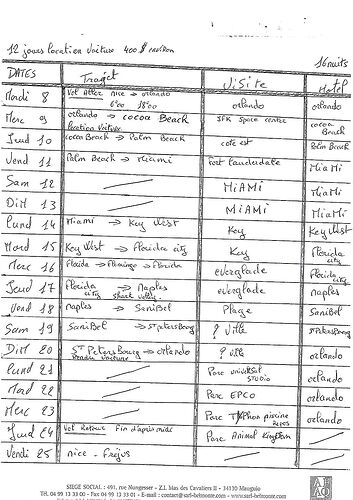 12 jours location voiture 400 $ environ
16 nuits
DATES Trajet Visite Hotel
Mardi 8 Vol Aller nice → orlando orlando orlando
6h00 18h00
Merc 9 orlando → cocoa Beach JFK Space centre cocoa Beach
location voiture
Jeud 10 cocoa Beach → Palm Beach cote est Palm Beach
Ven 11 Palm Beach → Miami Fort Lauderdale MiaMi
Sam 12 MiAMi MiaMi
Dim 13 MiAMi MiaMi
Lund 14 Miami → Key West Key Key West
Mard 15 Key West → Florida city Key Florida city
Merc 16 Florida → Flamingo → Florida everglade Florida city
Jeud 17 Florida city → Naples everglade naples
Shark valley
Vend 18 naples → Sanibel Plage Sanibel
Sam 19 Sanibel → St petersbourg ? Ville St Petersbourg
Dim 20 St Petersbourg → orlando ? Ville orlando
Rendu voiture
Lund 21 Parc universal studio orlando
Mard 22 Parc EPCO orlando
Merc 23 Parc Typhon piscine orlando
Jeud 24 Vol Retour Fin d'apres midi Parc Animal Kingdom
Vendr 25 nice - Fréjus
SIEGE SOCIAL : 491, rue Nungesser - Z.I. bias des Cavaliers II - 34130 Mauguio
Tél. 04 99 13 33 00 - Fax 04 99 13 33 01 - E-mail : contact@sarl-belmonte.com - www.sarl-belmonte.com